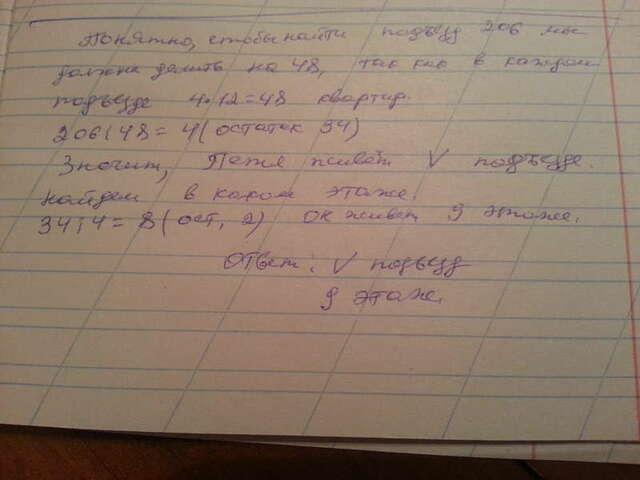 Понятно, чтобы найти подъезд 206 мы
должна делить на 48, так как в каждом
подъезде 4·12=48 квартир.
206:48=4(остаток 34)
Значит, Петя живёт V подъезде.
найдем в каком этаже.
34:4=8(ост, 2) ок живет 9 этаже.
Ответ: V подъезд
9 этаже.